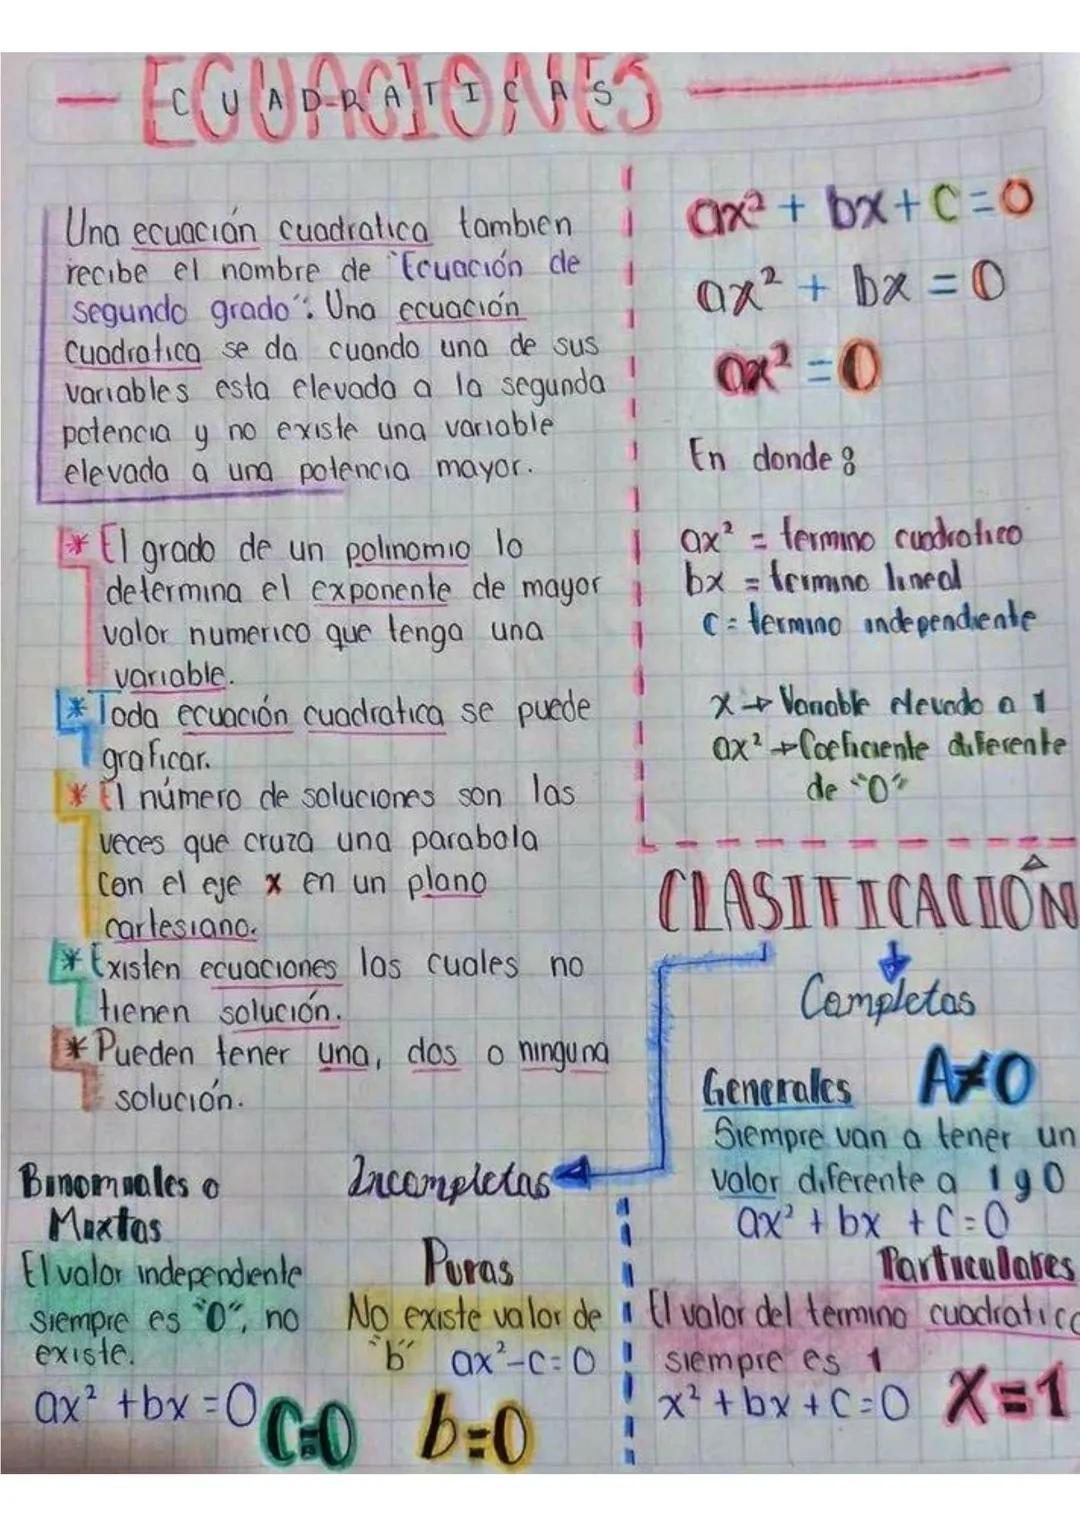 ECUACIONES
CUADRATICAS
Una ecuación cuadratica tambien
recibe el nombre de "Ecuación de
segundo grado". Una ecuación
cuadratica se da cuando una de sus
variables esta elevada a la segunda
potencia y no existe una variable
elevada a una potencia mayor.
* El grado de un polinomio lo
determina el exponente de mayor
valor numerico que tenga una
variable.
* Toda ecuación cuadratica se puede
graficar.
* El número de soluciones son las
veces que cruza una parabola
con el eje x en un plano
cartesiano.
* Existen ecuaciones las cuales no
tienen solución.
* Pueden tener una, dos o ninguna
solución.
ax² + bx + C = 0
ax² + bx = 0
ax² = 0
En donde:
ax² = termino cuadratico
bx = termino lineal
C = termino independiente
x → Variable elevada a 1
ax² → Coeficiente diferente
de "0"
CLASIFICACIÓN
Completas
Generales A≠0
Siempre van a tener un
valor diferente a 1 y 0
ax² + bx + C = 0
Particulares
El valor del termino cuadratico
siempre es 1
x² + bx + C = 0 X=1
Incompletas
Binomiales o
Mixtas
El valor independiente
siempre es "0", no
existe.
ax² + bx = 0 C=0
Puras
No existe valor de
"b" ax²-C=0
b=0